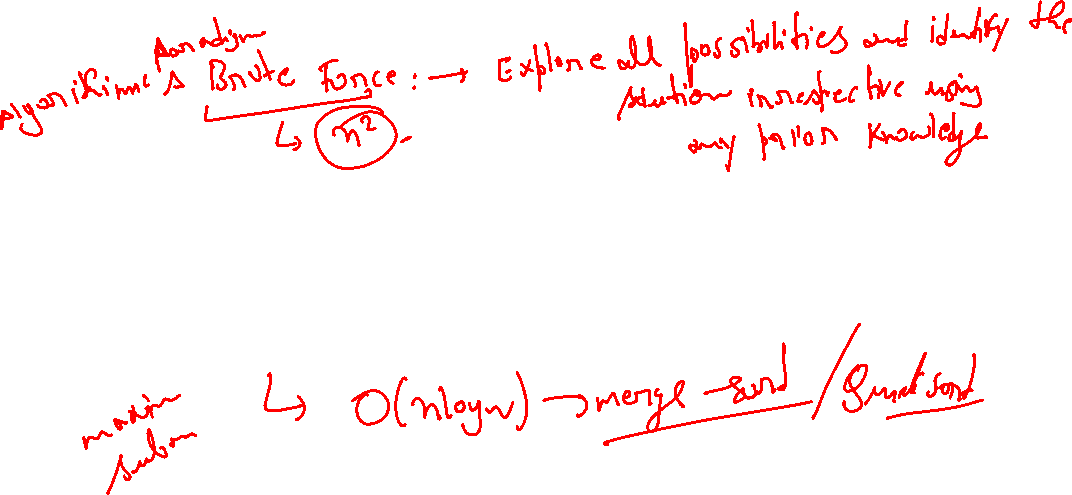 paradigm
Algorithmic s Brute Force : → Explore all possibilities and identify the
solution irrespective using
any prior knowledge
↳ n².
↳ O(nlogn) → merge sort / Quick sort
maxim
subar